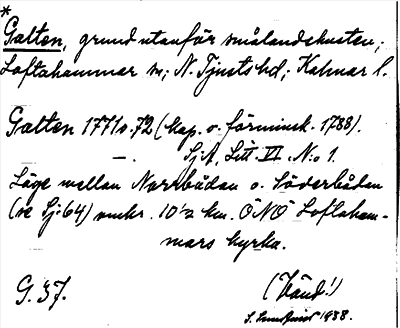 *
Galten, grund utanför smålandskusten,
Loftahammar sn; N. Tjusts hd; Kalmar l.
Galten 1771 o. 72 (kop. o. förminsk. 1788).
—. SjA, Litt. VI N:o 1.
Läge mellan Norrbådan o. Söderbådan
(se Sj: 64) omkr. 10½ km. ÖNÖ Loftaham-
mars kyrka.
G. 37. (Vänd!)
1938.